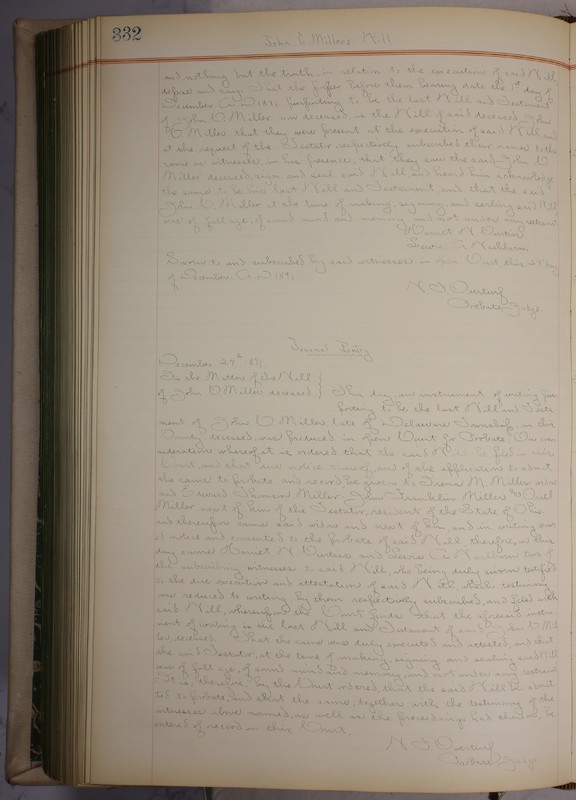 332
John C Miller's Will
and nothing but the truth, in relation to the execution of said Will
depose and say: That the paper before them bearing date the 1st day of
December A.D. 1891, purporting to be the last Will and Testament
of John C Miller now deceased is the Will of said deceased John
C Miller that they were present at the execution of said Will and
at the request of the Testator respectively subscribed their names to the
same as witnesses, in his presence; that they saw the said John C
Miller deceased, sign and seal said Will and heard him acknowledge
the same to be his last Will and Testament and that the said
John C Miller at the time of making, signing and sealing said Will,
was of full age, of sound mind and memory, and not under any restraint.
Sworn to and subscribed by said witnesses in open Court this day
of December A.D. 1891
Probate Judge.
Journal Entry
December 1891
In the Matter of the Will
of John C Miller deceased } This day, an instrument of writing pur
porting to be the last Will and Testa
ment of John C Miller late of Delaware Township, in this
County deceased, was produced in open Court for Probate, On con
sideration whereof it is ordered that the said Will be filed in said
Court, and that due notice thereof, and of the application to admit
the same to probate and record be given to M. Miller widow
and Miller, John Franklin Miller and
Miller next of kin of the Testator, resident of the State of Ohio.
and thereupon came said widow and next of kin, and in writing
notice and consented to the probate of said Will thereupon, on this
day came and two of
the subscribing witnesses to said Will, who being duly sworn testified
to the due execution and attestation of said Will, which testimony
was reduced to writing, by them respectively subscribed, and filed with
said Will, whereupon the Court finds that the aforesaid instru
ment of writing is the last Will and Testament of said John C Mil
ler deceased. That the same was duly executed and attested, and that
the said Testator, at the time of making, signing and sealing said Will
was of full age, of sound mind and memory, and not under any restraint
It is, therefore, by the Court ordered, that the said Will be admit
ted to probate, and that the same, together with the testimony of the
witnesses above named, as well as the proceedings had thereon, be
entered of record in this Court.
Probate Judge.